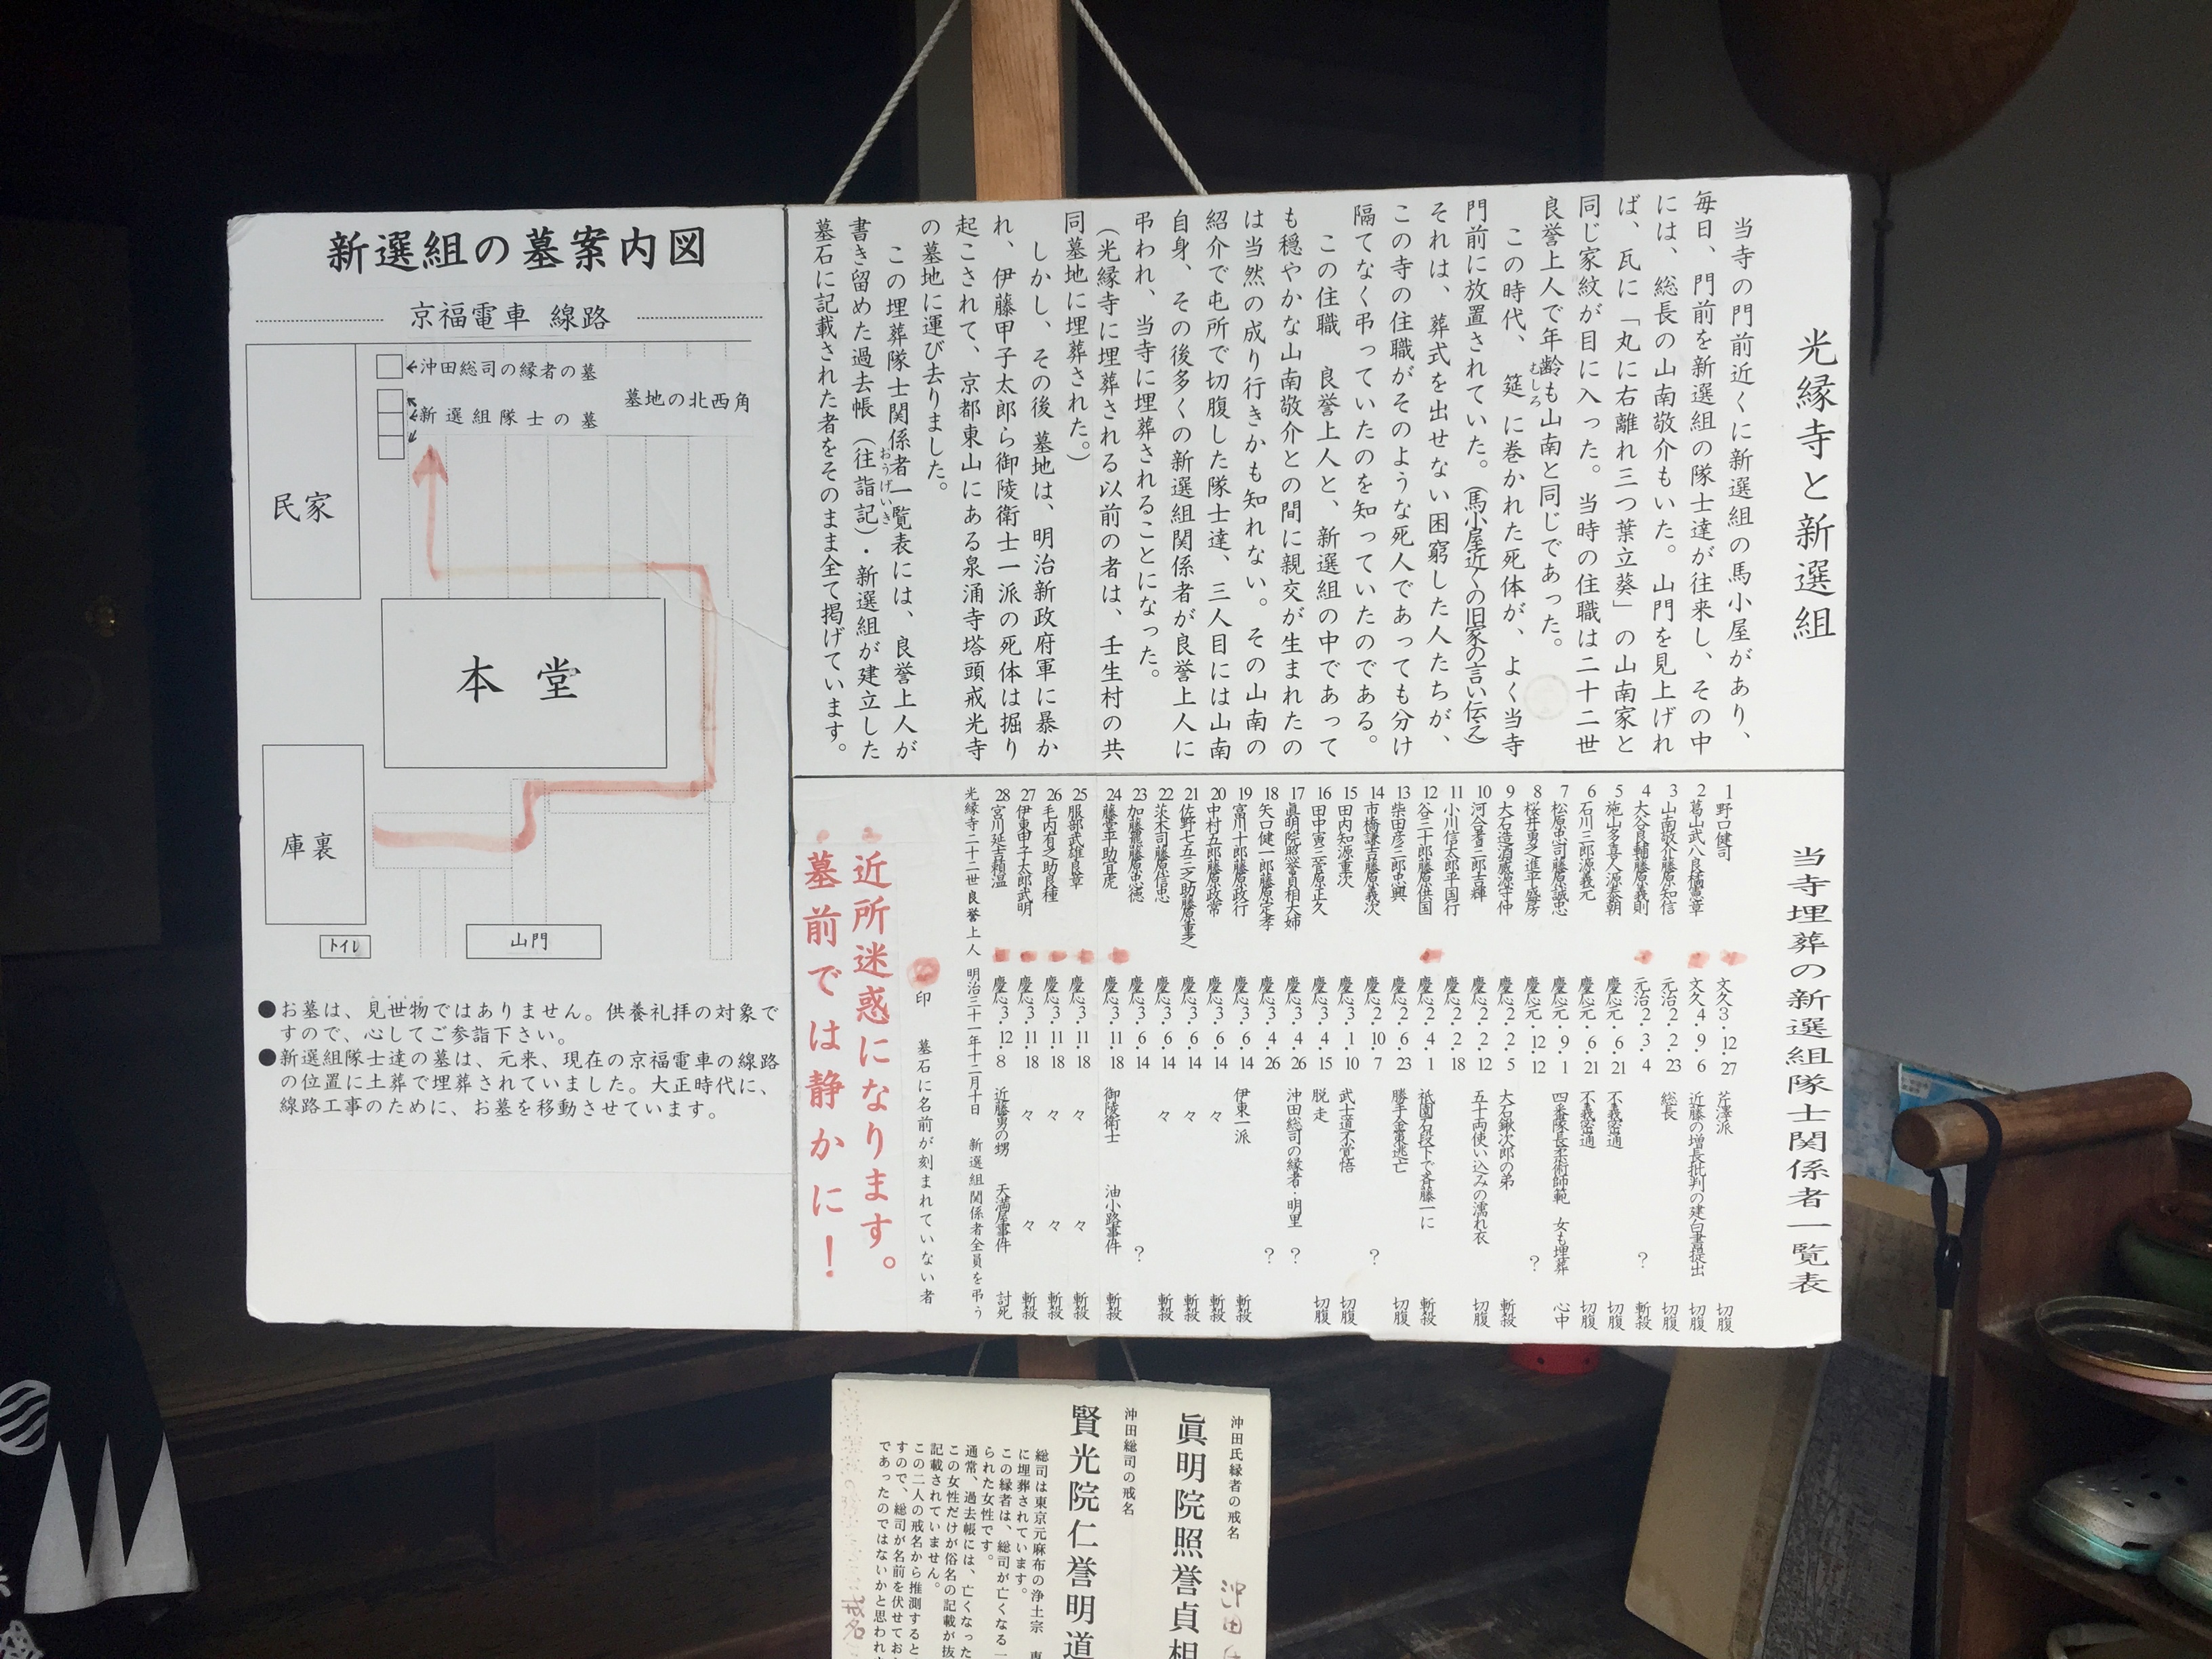 光縁寺と新選組
当寺の門前近くに新選組の馬小屋があり、
毎日、門前を新選組の隊士達が往来し、その中
には、総長の山南敬介もいた。山門を見上げれ
ば、瓦に「丸に右離れ三つ葉立葵」の山南家と
同じ家紋が目に入った。当時の住職は二十二世
良誉上人で年齢も山南と同じであった。
この時代、筵に巻かれた死体が、よく当寺
むしろ
門前に放置されていた。(馬小屋近くの旧家の言い伝え)
それは、葬式を出せない困窮した人たちが、
この寺の住職がそのような死人であっても分け
隔てなく弔っていたのを知っていたのである。
この住職 良誉上人と、新選組の中であって
も穏やかな山南敬介との間に親交が生まれたの
は当然の成り行きかも知れない。その山南の
紹介で屯所で切腹した隊士達、三人目には山南
自身、その後多くの新選組関係者が良誉上人に
弔われ、当寺に埋葬されることになった。
(光縁寺に埋葬される以前の者は、壬生村の共
同墓地に埋葬された。)
しかし、その後 墓地は、明治新政府軍に暴か
れ、伊藤甲子太郎ら御陵衛士一派の死体は掘り
起こされて、京都東山にある泉涌寺塔頭戒光寺
の墓地に運び去りました。
この埋葬隊士関係者一覧表には、良誉上人が
書き留めた過去帳(往詣記)・新選組が建立した
おうげいき
墓石に記載された者をそのまま全て掲げています。
当寺埋葬の新選組隊士関係者一覧表
1 野口健司 文久3・12・27 芹澤派 切腹
2 葛山武八良橘憲章 文久4・9・6 近藤の増長批判の建白書提出 切腹
3 山南敬介藤原知信 元治2・2・23 総長 切腹
4 大谷良輔藤原義則 元治2・3・4 ? 斬殺
5 施山多喜人源泰朝 慶応元・6・21 不義密通 切腹
6 石川三郎源義元 慶応元・6・21 不義密通 切腹
7 松原忠司藤原誠忠 慶応元・9・1 四番隊長柔術師範 女も埋葬 心中
8 桜井勇之進平盛房 慶応元・12・12 ?
9 大石造酒蔵源守仲 慶応2・2・5 大石鍬次郎の弟 斬殺
10 河合耆三郎吉輝 慶応2・2・12 五十両使い込みの濡れ衣 切腹
11 小川信太郎平国行 慶応2・2・18
12 谷三十郎藤原供国 慶応2・4・1 祇園石段下で斉藤一に 斬殺
13 柴田彦三郎忠興 慶応2・6・23 勝手金策逃亡 切腹
14 市橋謙吉藤原義次 慶応2・10・7 ?
15 田内知源重次 慶応3・1・10 武士道不覚悟 切腹
16 田中寅三菅原正久 慶応3・4・15 脱走 切腹
17 眞明院照誉貞相大姉 慶応3・4・26 沖田総司の縁者・明里 ?
18 矢口健一郎藤原定孝 慶応3・4・26 ?
19 富川十郎藤原政行 慶応3・6・14 伊東一派 斬殺
20 中村五郎藤原政常 慶応3・6・14 々 斬殺
21 佐野七五三之助藤原重之 慶応3・6・14 々 斬殺
22 茨木司藤原信忠 慶応3・6・14 々 斬殺
23 加藤羆藤原忠憲 慶応3・6・14 ?
24 藤堂平助宜虎 慶応3・11・18 御陵衛士 油小路事件 斬殺
25 服部武雄良章 慶応3・11・18 々 々 斬殺
26 毛内有之助良種 慶応3・11・18 々 々 斬殺
27 伊東甲子太郎武明 慶応3・11・18 々 々 斬殺
28 宮川延吉頼温 慶応3・12・8 近藤勇の甥 天満屋事件 討死
光縁寺二十二世良誉上人 明治三十一年十二月十日 新選組関係者全員を弔う
印 墓石に名前が刻まれていない者
近所迷惑になります。
墓前では静かに!
新選組の墓案内図
京福電車 線路
←沖田総司の縁者の墓
墓地の北西角
←新選組隊士の墓
民家
本堂
庫裏
トイレ
山門
●お墓は、見世物ではありません。供養礼拝の対象で
すので、心してご参詣下さい。
●新選組隊士達の墓は、元来、現在の京福電車の線路
の位置に土葬で埋葬されていました。大正時代に、
線路工事のために、お墓を移動させています。
沖田氏縁者の戒名
眞明院照誉貞相
沖田
沖田総司の戒名
賢光院仁誉明道
総司は東京元麻布の浄土宗
に埋葬されています。
この縁者は、総司が亡くなる一
られた女性です。
通常、過去帳には、亡くなった
この女性だけが俗名の記載が抜
記載されていません。
この二人の戒名から推測すると
すので、総司が名前を伏せてお
であったのではないかと思われ
戒名